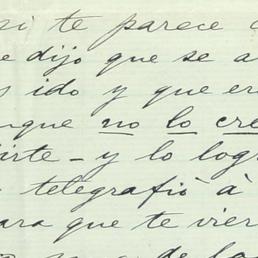 si te parece
e dijo que se a
s ido y que er
nque no lo cre
irte - y lo logr
telegrafió à
ara que te vier